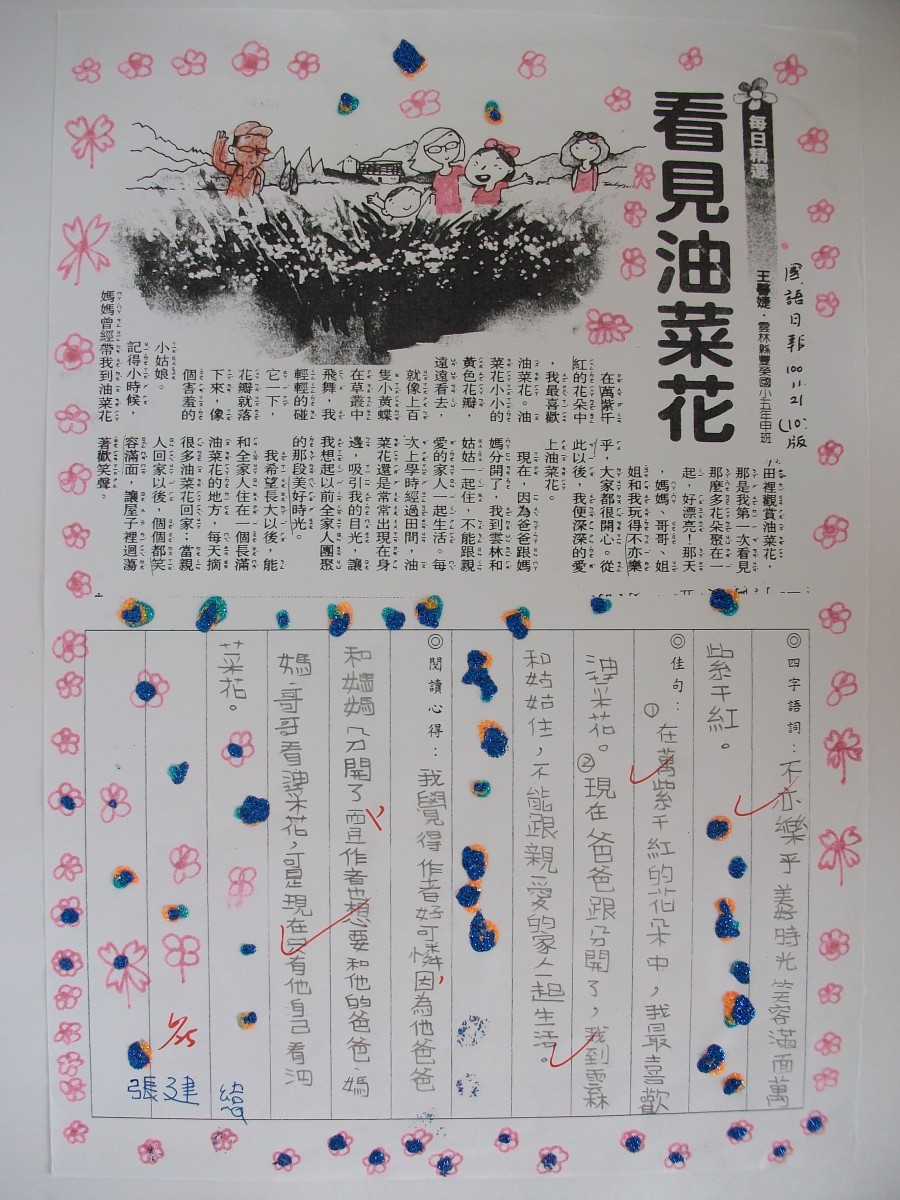 每日精選
看見油菜花
王馨婕．雲林縣豐榮國小五年申班
國語日報 100.11.21 (10)版
在萬紫千
紅的花朵中
，我最喜歡
油菜花。油
菜花小小的
黃色花瓣，
遠遠看去，
就像上百
隻小黃蝶
在草叢中
飛舞，我
輕輕的碰
它一下，
花瓣就落
下來，像
個害羞的
小姑娘。
記得小時候，
媽媽曾經帶我到油菜花
田裡觀賞油菜花，
那是我第一次看見
那麼多花朵聚在一
起，好漂亮！那天
，媽媽、哥哥、姐
姐和我玩得不亦樂
乎，大家都很開心。從
此以後，我便深深的愛
上油菜花。
現在，因為爸爸跟媽
媽分開了，我到雲林和
姑姑一起住，不能跟親
愛的家人一起生活。每
次上學時經過田間，油
菜花還是常常出現在身
邊，吸引我的目光，讓
我想起以前全家人團聚
的那段美好時光。
我希望長大以後，能
和全家人住在一個長滿
油菜花的地方，每天摘
很多油菜花回家；當親
人回家以後，個個都笑
容滿面，讓屋子裡迴蕩
著歡笑聲。
◎四字語詞：不亦樂乎 美好時光 笑容滿面 萬
紫千紅。
◎佳句：①在萬紫千紅的花朵中，我最喜歡
油菜花。②現在爸爸跟分開了，我到雲林
和姑姑住，不能跟親愛的家人一起生活。
◎閱讀心得：我覺得作者好可憐，因為他爸爸
和媽媽分開了，而且作者也想要和他的爸爸．媽
媽．哥哥看油菜花，可是現在只有他自己看油
菜花。
1/25
張建